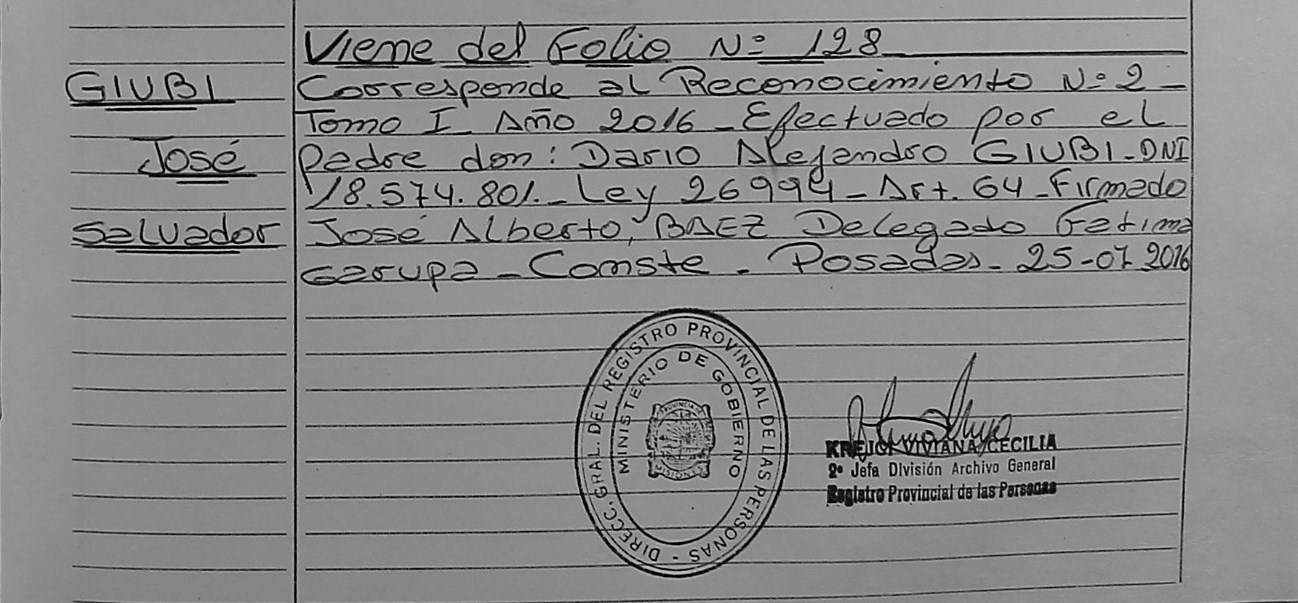 Viene del Folio Nº 128
GIUBI
Corresponde al Reconocimiento Nº 2 -
Tomo I Año 2016 - Efectuado por el
José
padre don: Dario Alejandro GIUBI - DNI
18.574.801. - Ley 26994 - Art. 64 - Firmado
Salvador
José Alberto, BAEZ Delegado Fatima
Garupa - Conste. - Posadas - 25-07 2016
DIRECC. GRAL. DEL REGISTRO PROVINCIAL DE LAS PERSONAS -
MINISTERIO DE GOBIERNO
KREJCI VIVIANA CECILIA
2º Jefa División Archivo General
Registro Provincial de las Personas